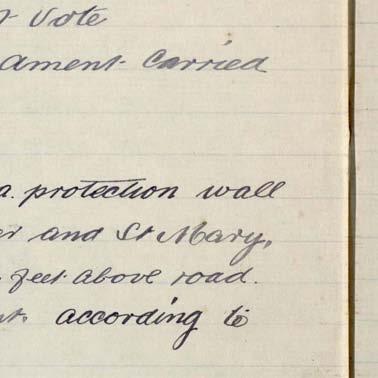 Vote
ament Carried
a protection wall
and St Mary,
feet above road.
according to